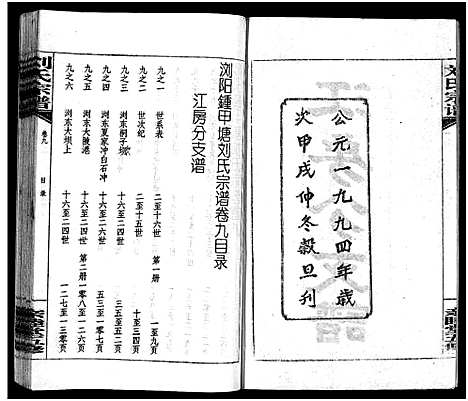 公元一九九四年歲
次甲戌仲冬穀旦刊
刘氏宗谱
刘氏宗谱
卷九
目录
浏阳鍾甲塘刘氏宗谱卷九目录
江房分支谱
第一册
九之一 世系表 二至十六世 一至九页
九之二 世次纪 二至十五世 十至三四页
九之三 浏东桐子坡 十六至二四世 三五至五二页
九之四 浏东夏家冲白石冲 十六至二四世 五三至一〇七页
第二册
九之五 浏东大陂港 十六至二四世 一〇八至一二六页
九之六 浏东大坝上 十六至二四世 一二七至一三〇页